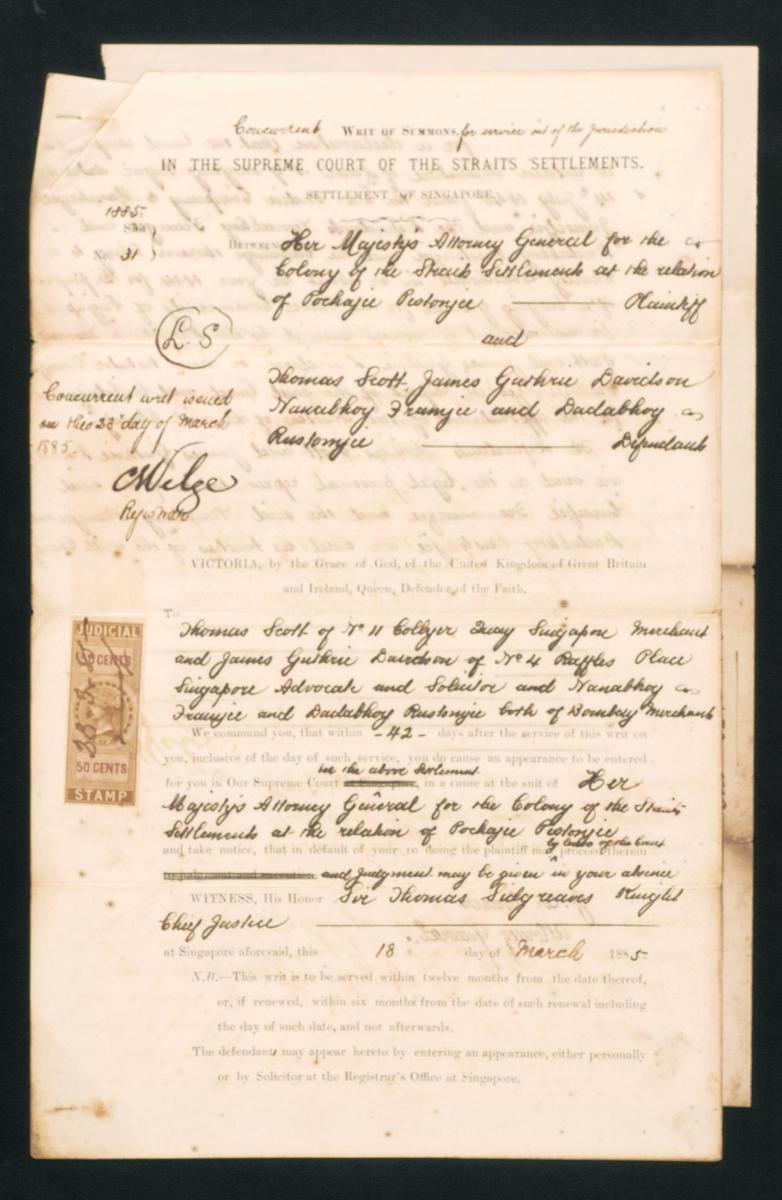 Concurrent WRIT OF SUMMONS, for service out of the Jurisdiction
IN THE SUPREME COURT OF THE STRAITS SETTLEMENTS.
SETTLEMENT OF SINGAPORE.
1885
No. 31
BETWEEN Her Majesty's Attorney General for the
Colony of the Straits Settlements at the relation
of Pochajee Pestonjee Plaintiff
L. S
and
Thomas Scott James Guthrie Davidson
Nanabhoy Framjee and Dadabhoy
Rustomjee Defendants
Concurrent writ issued
on this 23d day of March
1885.
Registrar
VICTORIA, by the Grace of God, of the United Kingdom of Great Britain
and Ireland, Queen, Defender of the Faith.
To
Thomas Scott of No 11 Collyer Quay Singapore Merchant
and James Guthrie Davidson of No 4 Raffles Place
Singapore Advocate and Solicitor and Nanabhoy
Framjee and Dadabhoy Rustomjee both of Bombay Merchants
We command you, that within - 42 - days after the service of this writ on
you, inclusive of the day of such service, you do cause an appearance to be entered
for you in Our Supreme Court in the above Settlement, in a cause at the suit of Her
Majesty's Attorney General for the Colony of the Straits
Settlements at the relation of Pochajee Pestonjee
and take notice, that in default of your so doing the plaintiff may by leave of the Court proceed therein
by judgment and execution and Judgment may be given in your absence
WITNESS, His Honor Sir Thomas Sidgreaves Knight
Chief Justice
at Singapore aforesaid, this 18 day of March 1885.
N.B.—This writ is to be served within twelve months from the date thereof,
or, if renewed, within six months from the date of such renewal including
the day of such date, and not afterwards.
The defendants may appear hereto by entering an appearance, either personally
or by Solicitor at the Registrar's Office at Singapore.
JUDICIAL
50 CENTS
50 CENTS
STAMP